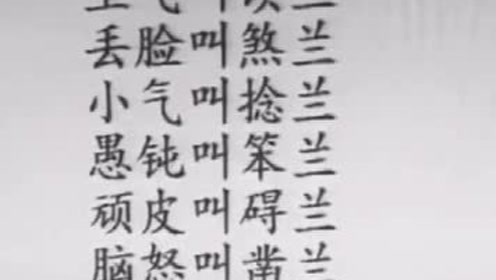 丢脸叫煞兰
小气叫捻兰
愚钝叫笨兰
顽皮叫碍兰
脑怒叫凿兰